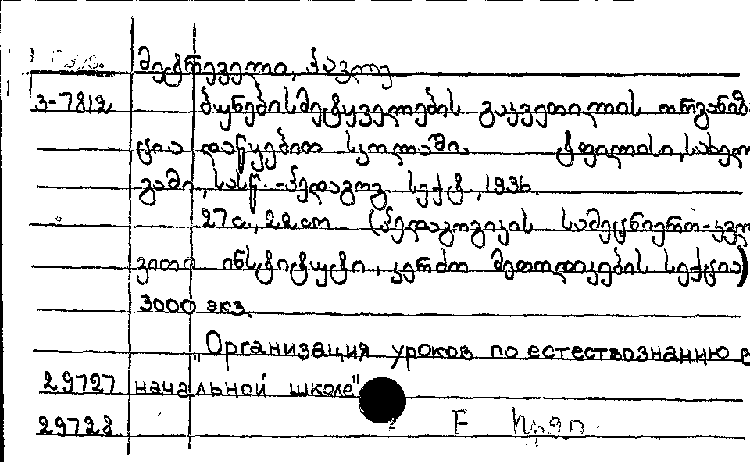 მეტრეველი, პავლე
3-7812 ბუნებისმეტყველების გაკვეთილის ორგანიზა
ცია დაწყებით სკოლაში. ტფილისი, სახელ
გამი, სასწ.-პედაგოგ. სექტ., 1936.
27 с., 22 cm (პედაგოგიკის სამეცნიერო-კვლ
ვითი ინსტიტუტი, კერძო მეთოდიკების სექცია)
3000 экз.
"Организация уроков по естествознанию в
29727 начальной школе"
29728